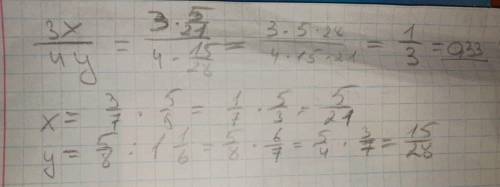 3x/4y = (3 · 5/21)/(4 · 15/28) = (3 · 5 · 28)/(4 · 15 · 21) = 1/3 = 0,33
x = 3/7 · 5/9 = 1/7 · 5/3 = 5/21
y = 5/8 : 1 1/6 = 5/8 · 6/7 = 5/4 · 3/7 = 15/28